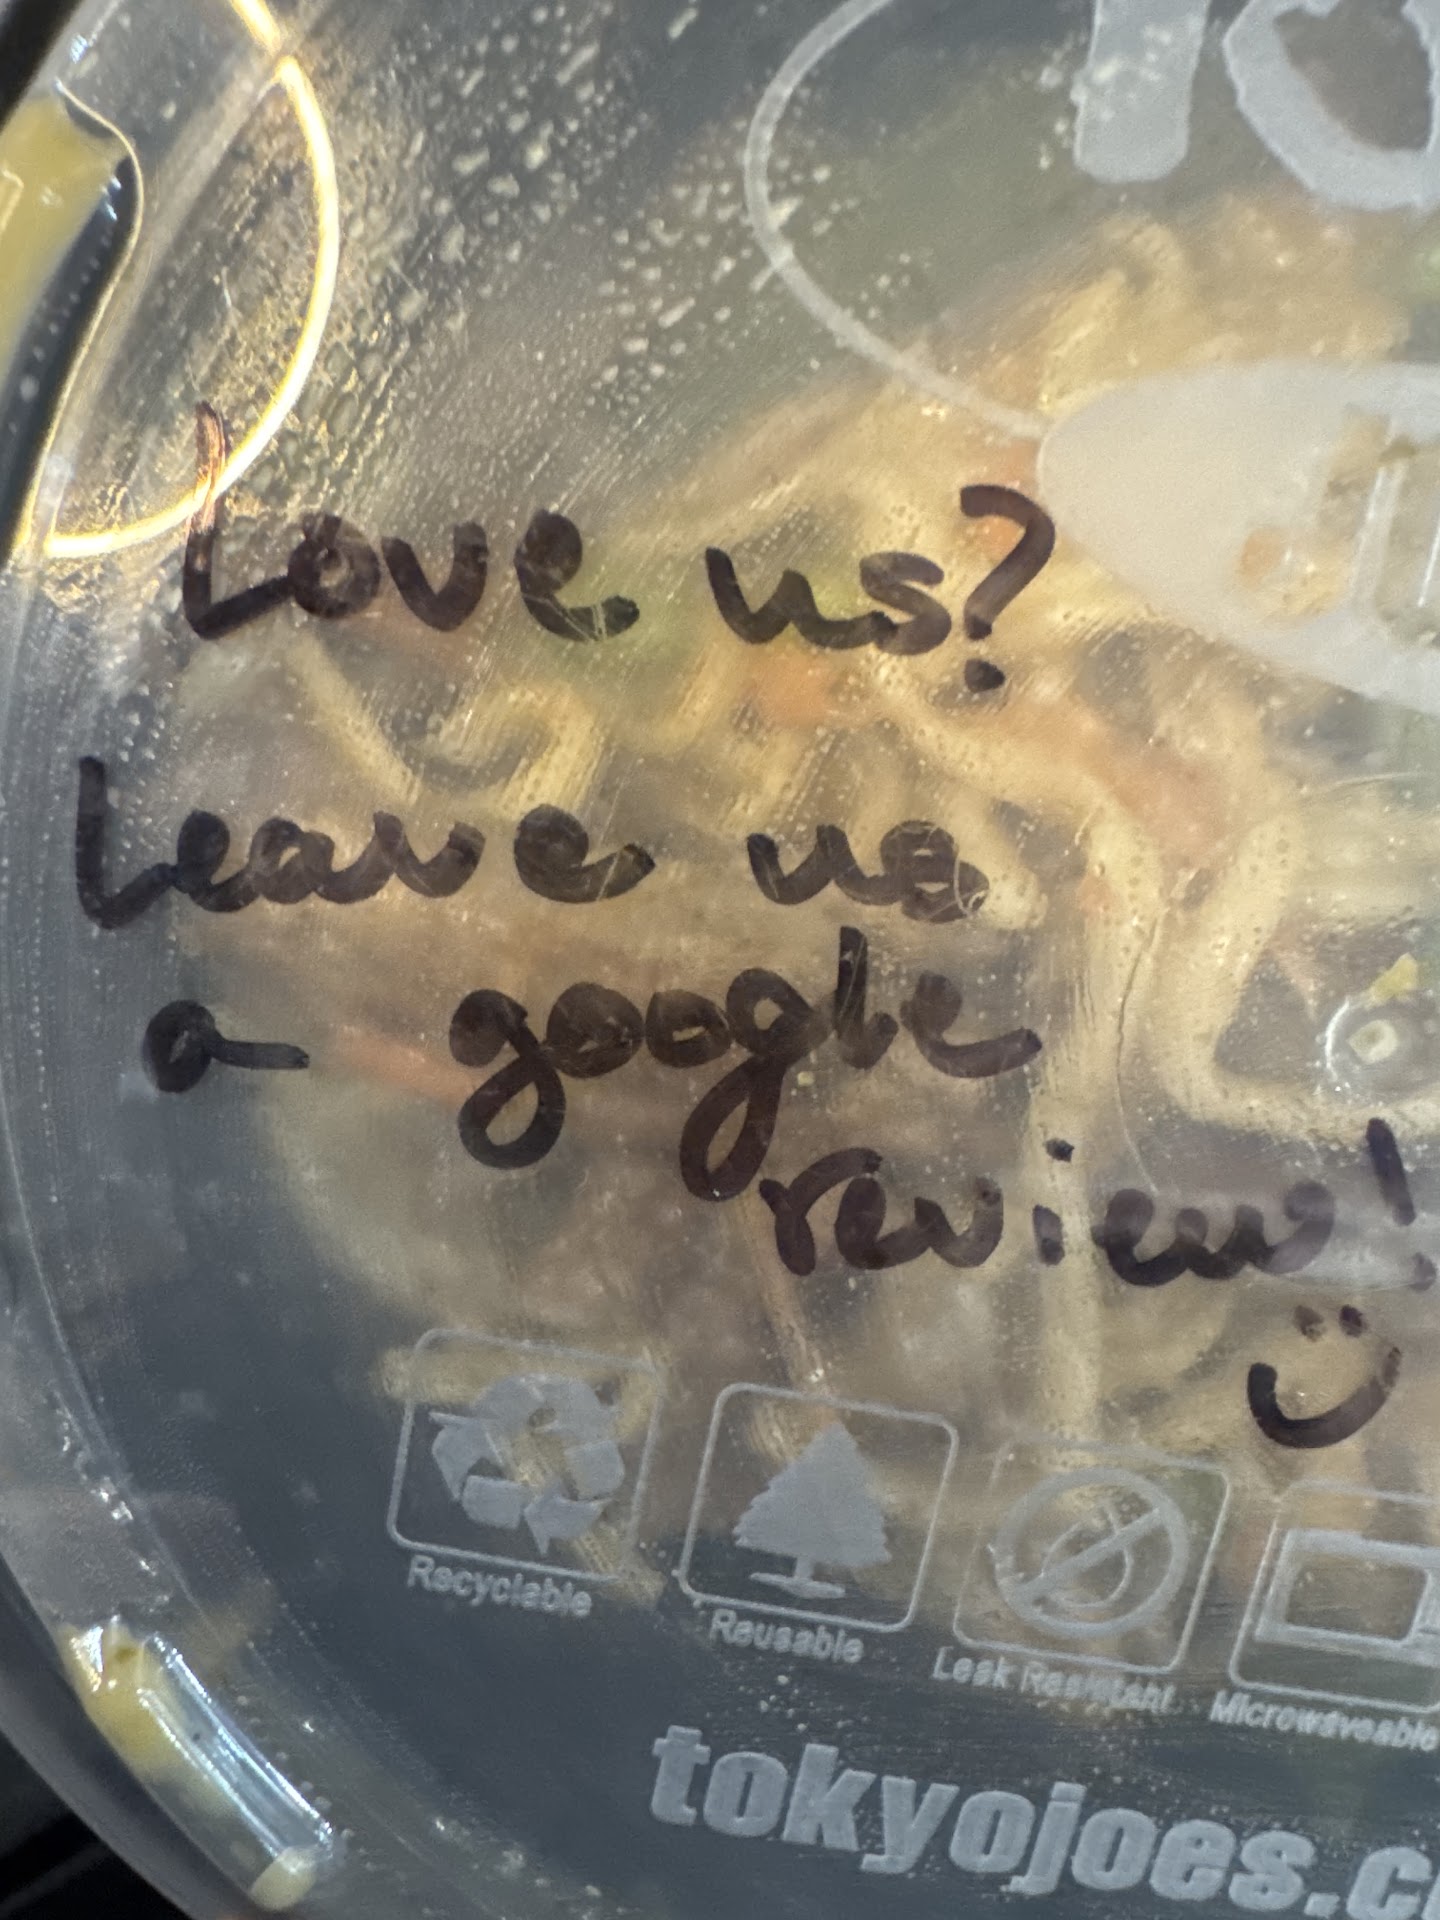 Love us?
Leave us
a google
review!
Recyclable
Reusable
Leak Resistant
Microwaveable
tokyojoes.c